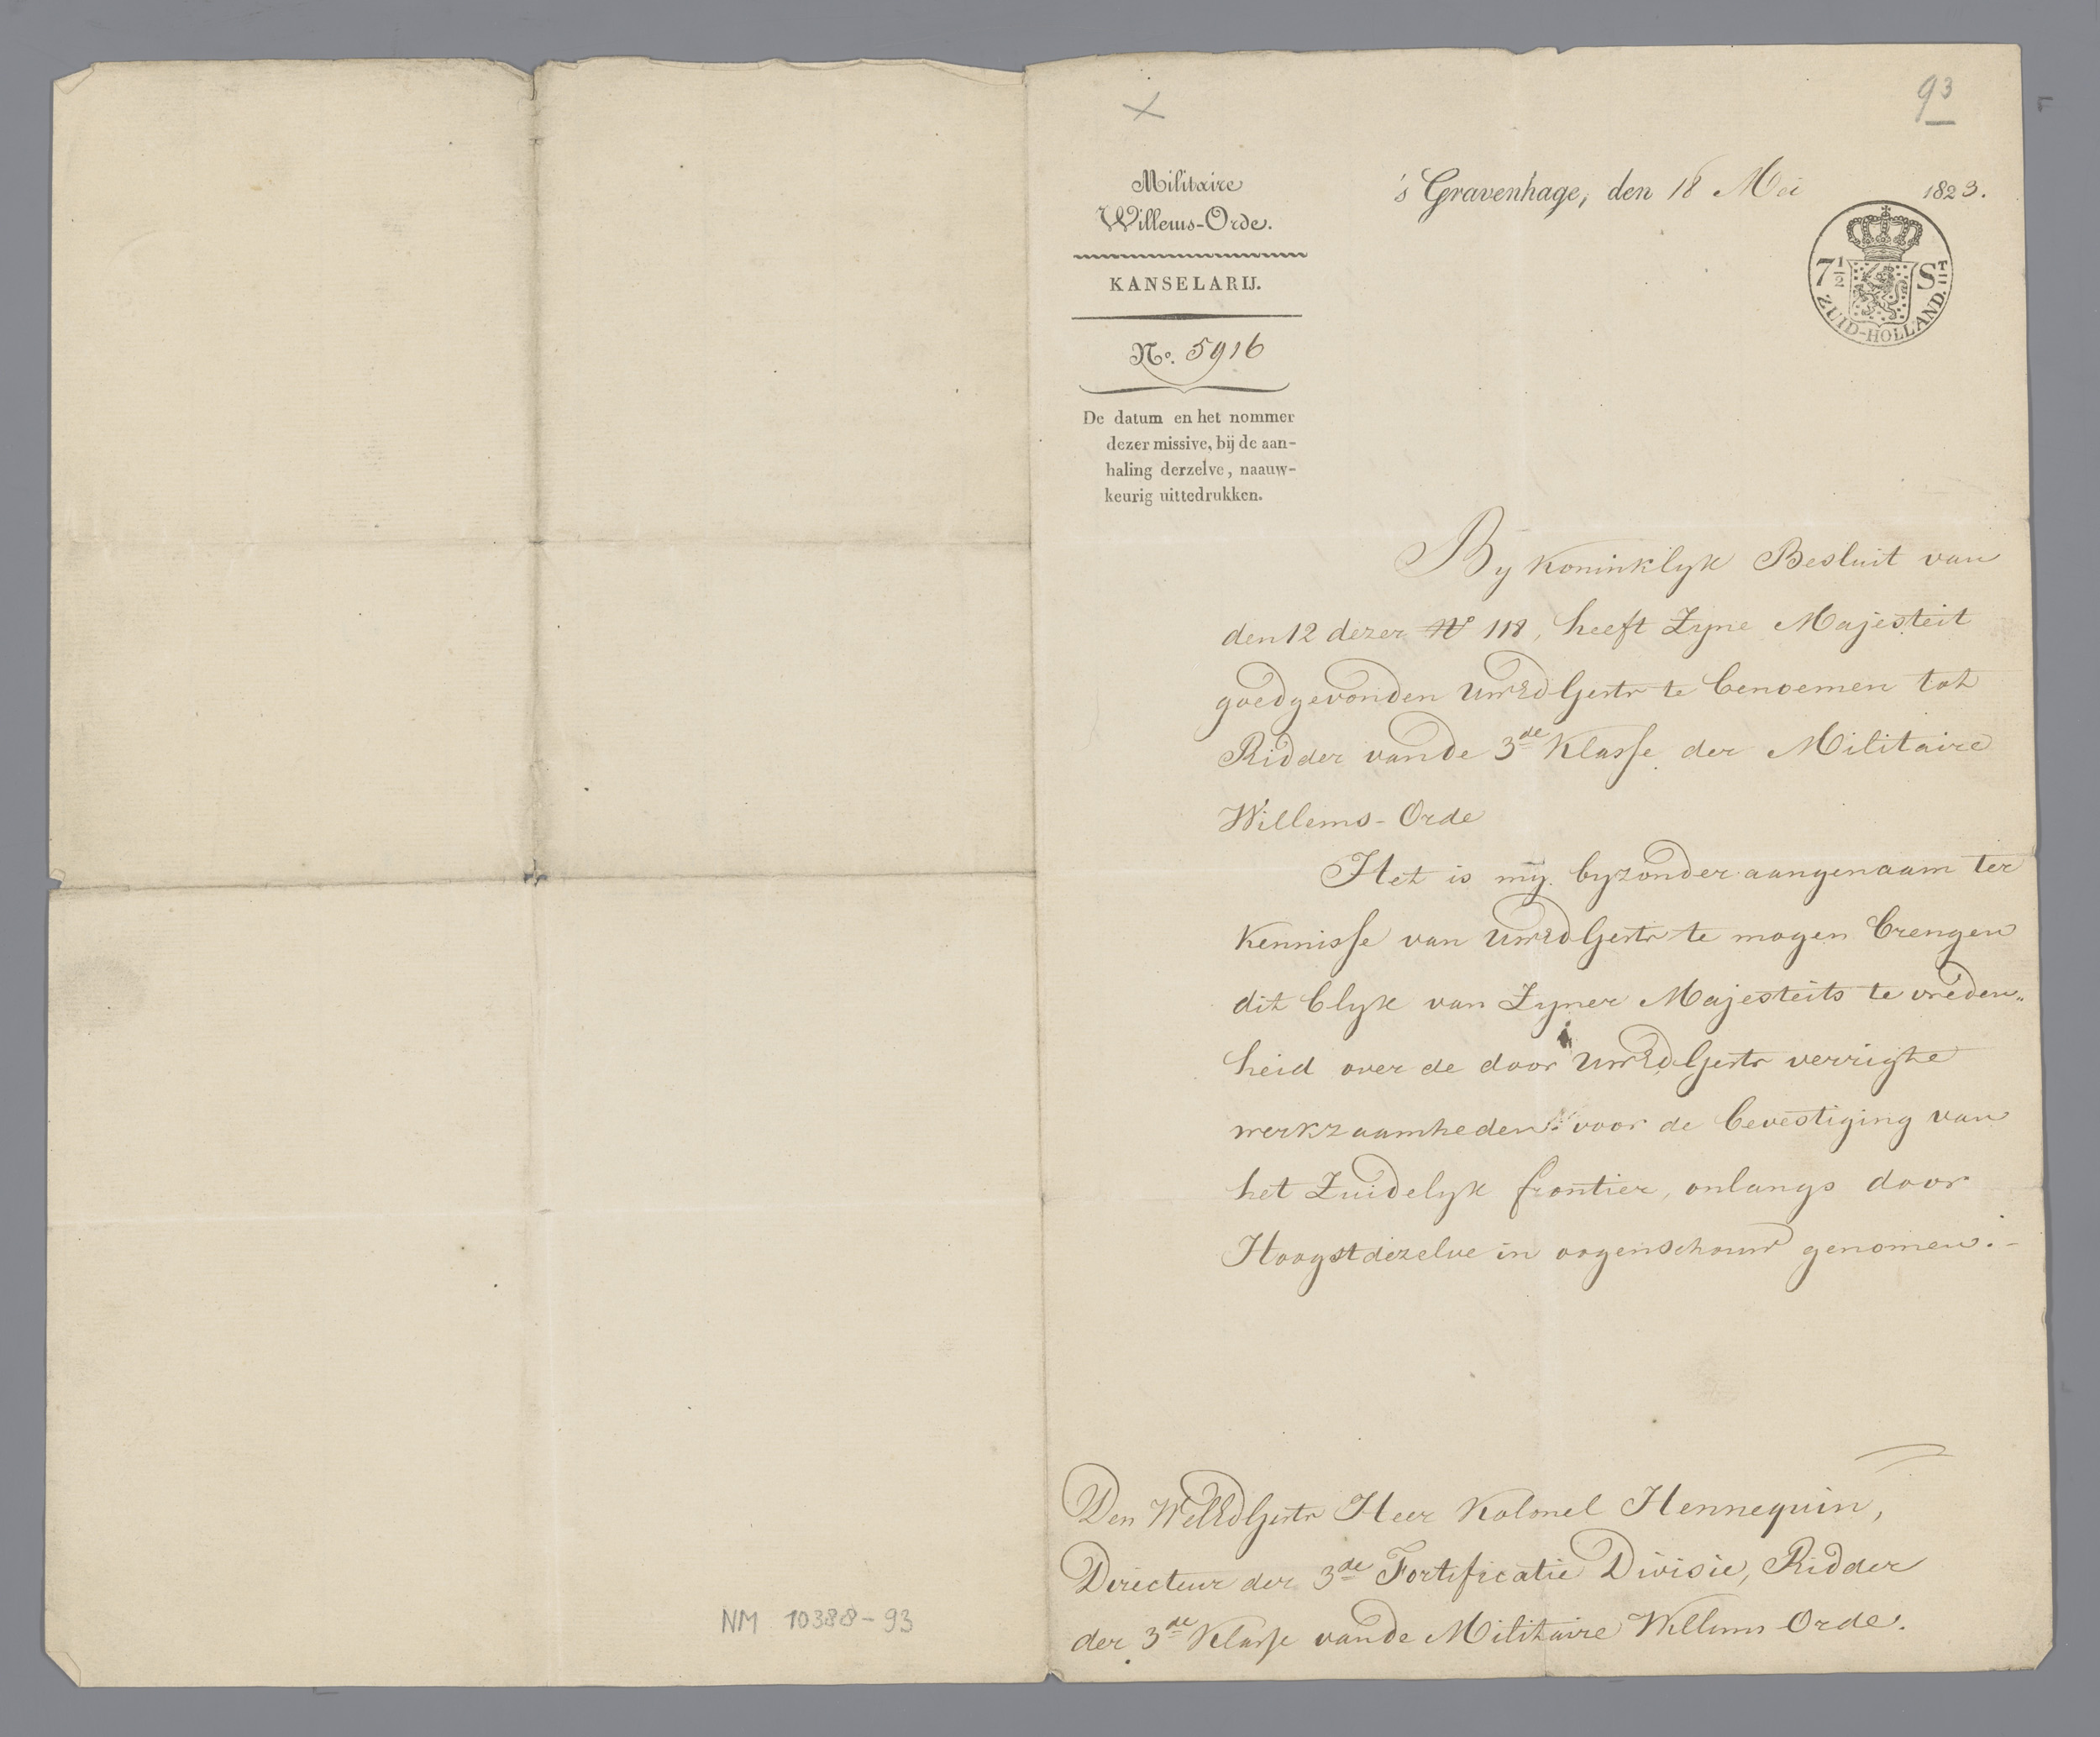 93
Militaire
Willems-Orde.
KANSELARIJ.
No. 5916
De datum en het nommer
dezer missive, bij de aan-
haling derzelve, naauw-
keurig uittedrukken.
's Gravenhage, den 18 Mei 1823.
7 1/2 St.
ZUID-HOLLAND.
By Koninklyk Besluit van
den 12 dezer No 118, heeft Zyne Majesteit
goedgevonden UwEdGestr te benoemen tot
Ridder van de 3de Klasse der Militaire
Willems-Orde
Het is my byzonder aangenaam ter
Kennisse van UwEdGestr te mogen brengen
dit blyk van Zyner Majesteits te vreden„
heid over de door UwEdGestr verrigte
werkzaamheden voor de bevestiging van
het Zuidelyk frontier, onlangs door
Hoogstdezelve in oogenschouw genomen.-
Den WelEdGestr Heer Kolonel Hennequin,
Directeur der 3de Fortificatie Divisie, Ridder
der 3de Klasse van de Militaire Willems Orde.
NM 10388-93